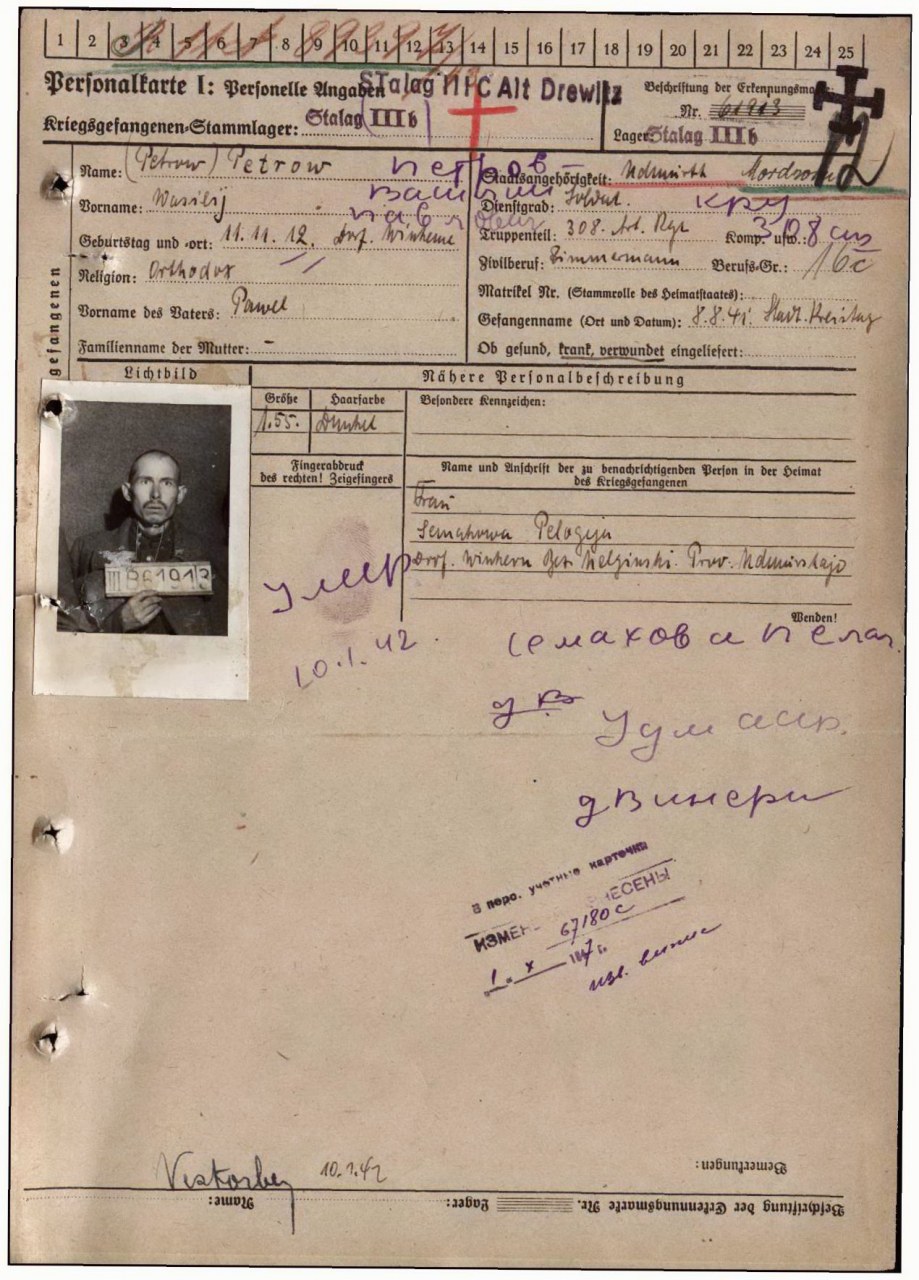 1 2 3 4 5 6 7 8 9 10 11 12 13 14 15 16 17 18 19 20 21 22 23 24 25
Personalkarte I: Personelle Angaben
STalag III C Alt Drewitz
Beschriftung der Erkennungsmarke
Nr. 61913
Kriegsgefangenen-Stammlager: Stalag III b
Lager: Stalag III b
gefangenen
Name: (Petrow) Petrow
Петров
Staatsangehörigkeit:
Vorname: Wasilij
Василий
Dienstgrad: Soldat.
Павл
Geburtstag und -ort: 11.11.12. Dorf.
Truppenteil: 308. Art. Rgt Komp. usw.:
308 ап
Religion: Orthodox
Zivilberuf: Zimmermann Berufs-Gr.: 16c
Vorname des Vaters: Pawel
Matrikel Nr. (Stammrolle des Heimatstaates):
Gefangenname (Ort und Datum): 8.8.41.
Familienname der Mutter: -
Ob gesund, krank, verwundet eingeliefert:
Lichtbild
Nähere Personalbeschreibung
Größe Haarfarbe
Besondere Kennzeichen:
1.55. Dunkel
Fingerabdruck
des rechten! Zeigefingers
Name und Anschrift der zu benachrichtigenden Person in der Heimat
des Kriegsgefangenen
Frau
Semakowa Pelogeja
Dorf.
III B 61913
Умер
10.1.42.
Wenden!
Семахова Пелаг.
Удм аср.
д Винери
В перс. учетные карточки
67180с
1. X 1947 г.
10.1.42
Bemerkungen:
Beschriftung der Erkennungsmarke Nr. Lager: Name: